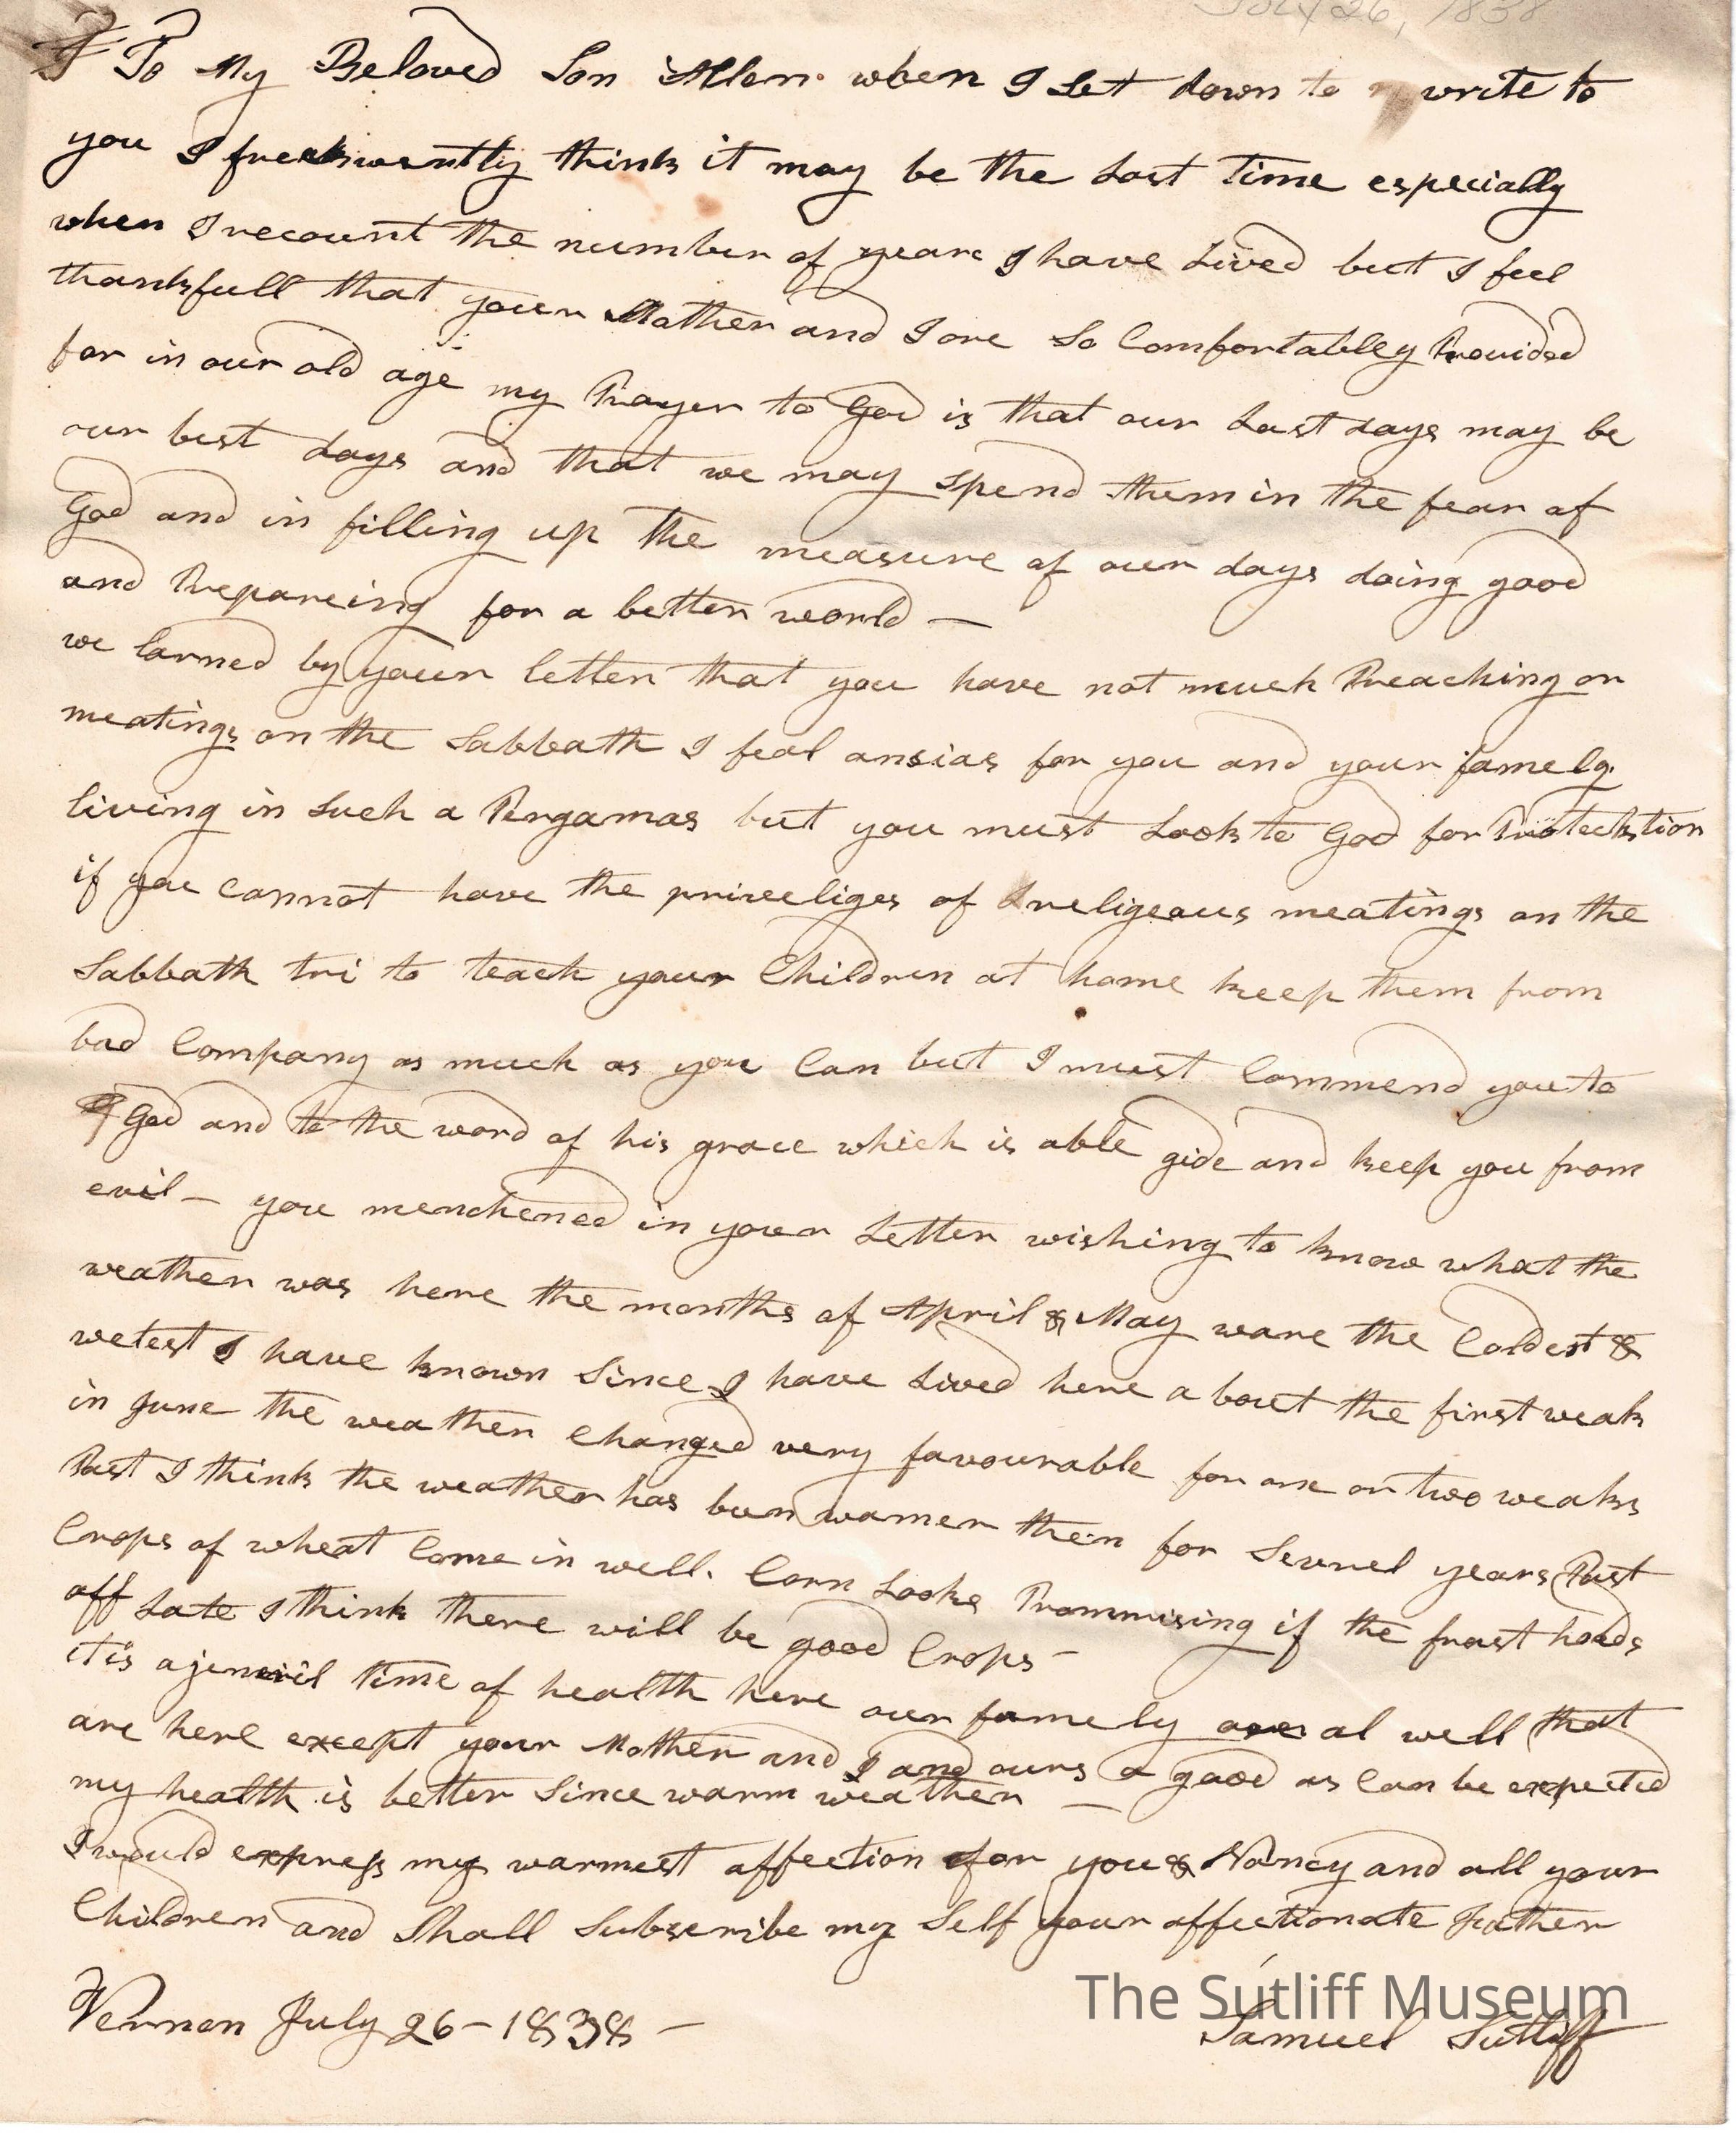 July 26, 1838
To My Beloved Son Allen when I Set down to write to
you I freekwantly think it may be the Last Time especially
when I recount the number of years I have Lived but I feel
thankfull that your Mother and I are So Comfortablley Provided
for in our old age my Prayer to God is that our Last days may be
our best days and that we may Spend them in the fear of
God and in filling up the measure of our days doing good
and Prepareing for a better world —
we larned by your letter that you have not much Preaching or
meatings on the Sabbath I feal ansias for you and your famely
living in Such a Pergamas but you must Look to God for Protecktion
if you cannot have the priveeliges of religeous meatings on the
Sabbath tri to teach your Children at home keep them from
bad Company as much as you Can but I must Commend you to
God and to the word of his grace which is able gide and keep you from
evil — you menchened in your Letter wishing to know what the
weather was here the months of April & May ware the Coldest &
wetest I have known Since I have Lived here a bout the first weak
in June the weather Changed very favourable for one or two weaks
Past I think the weather has been warmer then for Severel years Past
Crops of wheat Come in well. Corn Looks Prommising if the frost holds
off Late I think there will be good Crops —
it is a jeneril time of health here our famely al well that
are here except your Mother and I and ours a good as Can be expected
my health is better Since warm weather —
I would express my warmest affection for you & Nancy and all your
Children and Shall Subscribe my Self your affectionate Father
The Sutliff Museum
Vernon July 26 – 1838 — Samuel Sutliff